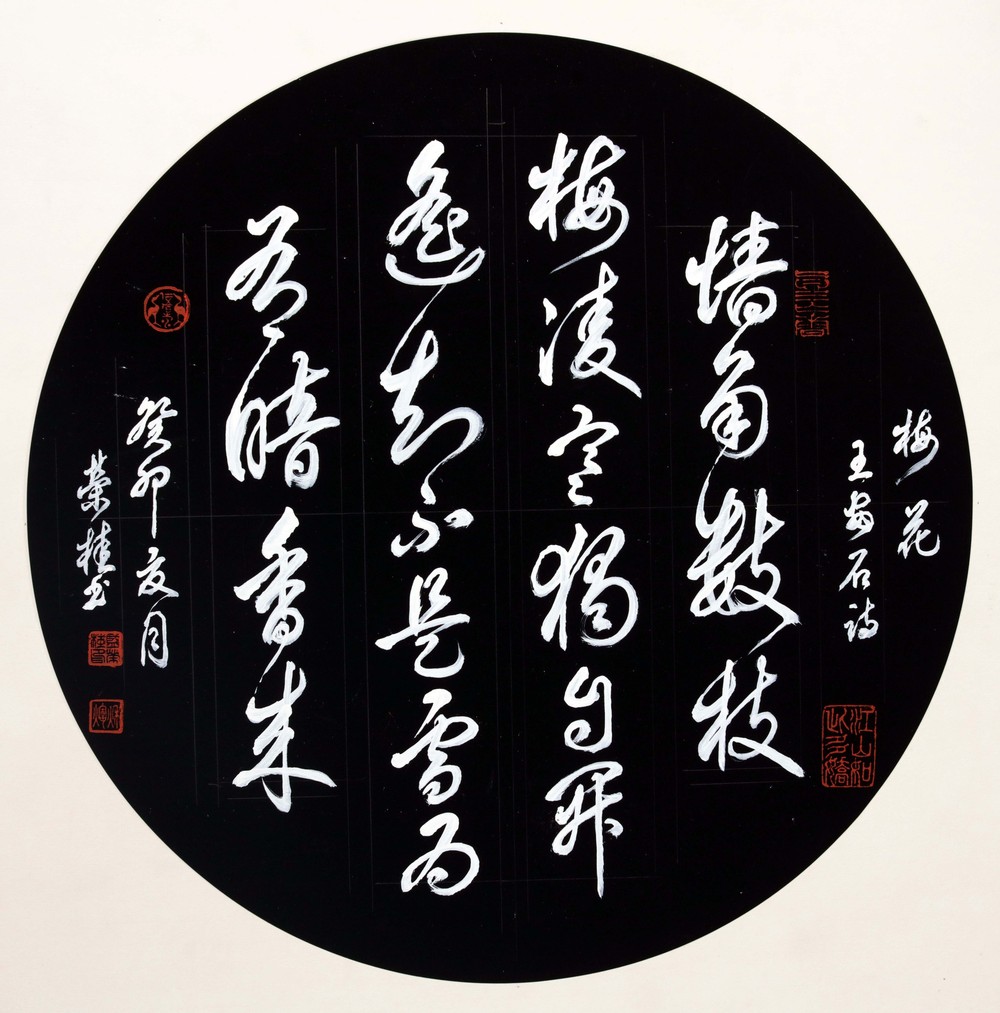 梅花
王安石诗
墙角数枝
梅凌寒独自开
遥知不是雪为
有暗香来
癸卯夏月
荣桂书
江山如
此多嬌